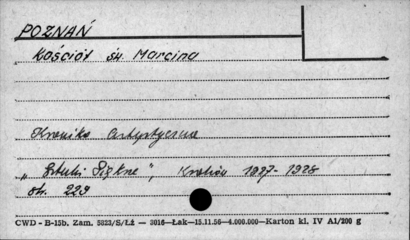 POZNAŃ
Kościół św. Marcina
Kronika Artystyczna
„Sztuki Piękne", Kraków 1927-1928
str. 229
CWD - B-15b. Zam. 5823/S/Łż — 3016—Łak—15.11.56—4.000.000—Karton kl. IV A1/200 g